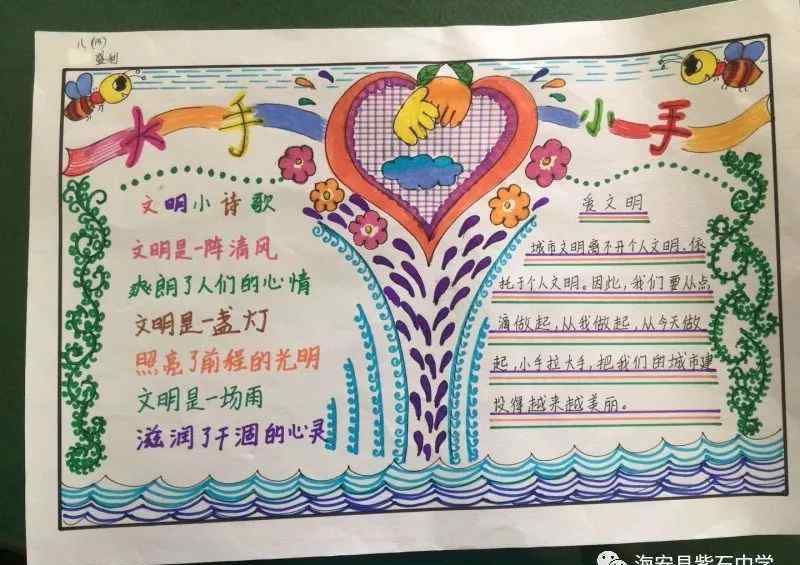 八(14)
大手 小手
文明小诗歌
文明是一阵清风
爽朗了人们的心情
文明是一盏灯
照亮了前程的光明
文明是一场雨
滋润了干涸的心灵
爱文明
城市文明离不开个人文明、依
托于个人文明。因此,我们要从点
滴做起,从我做起,从今天做
起,小手拉大手,把我们的城市建
设得越来越美丽。
海安县紫石中学